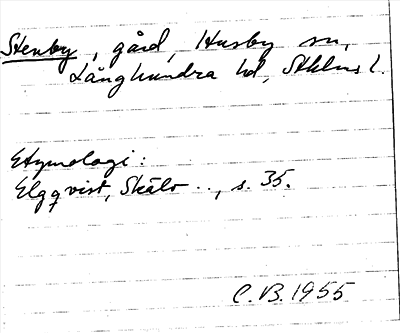 Stenby, gård, Husby sn,
Långhundra hd, Sthlms l.
Etymologi:
Elgqvist, Skälv .., s. 35.
C.B. 1955